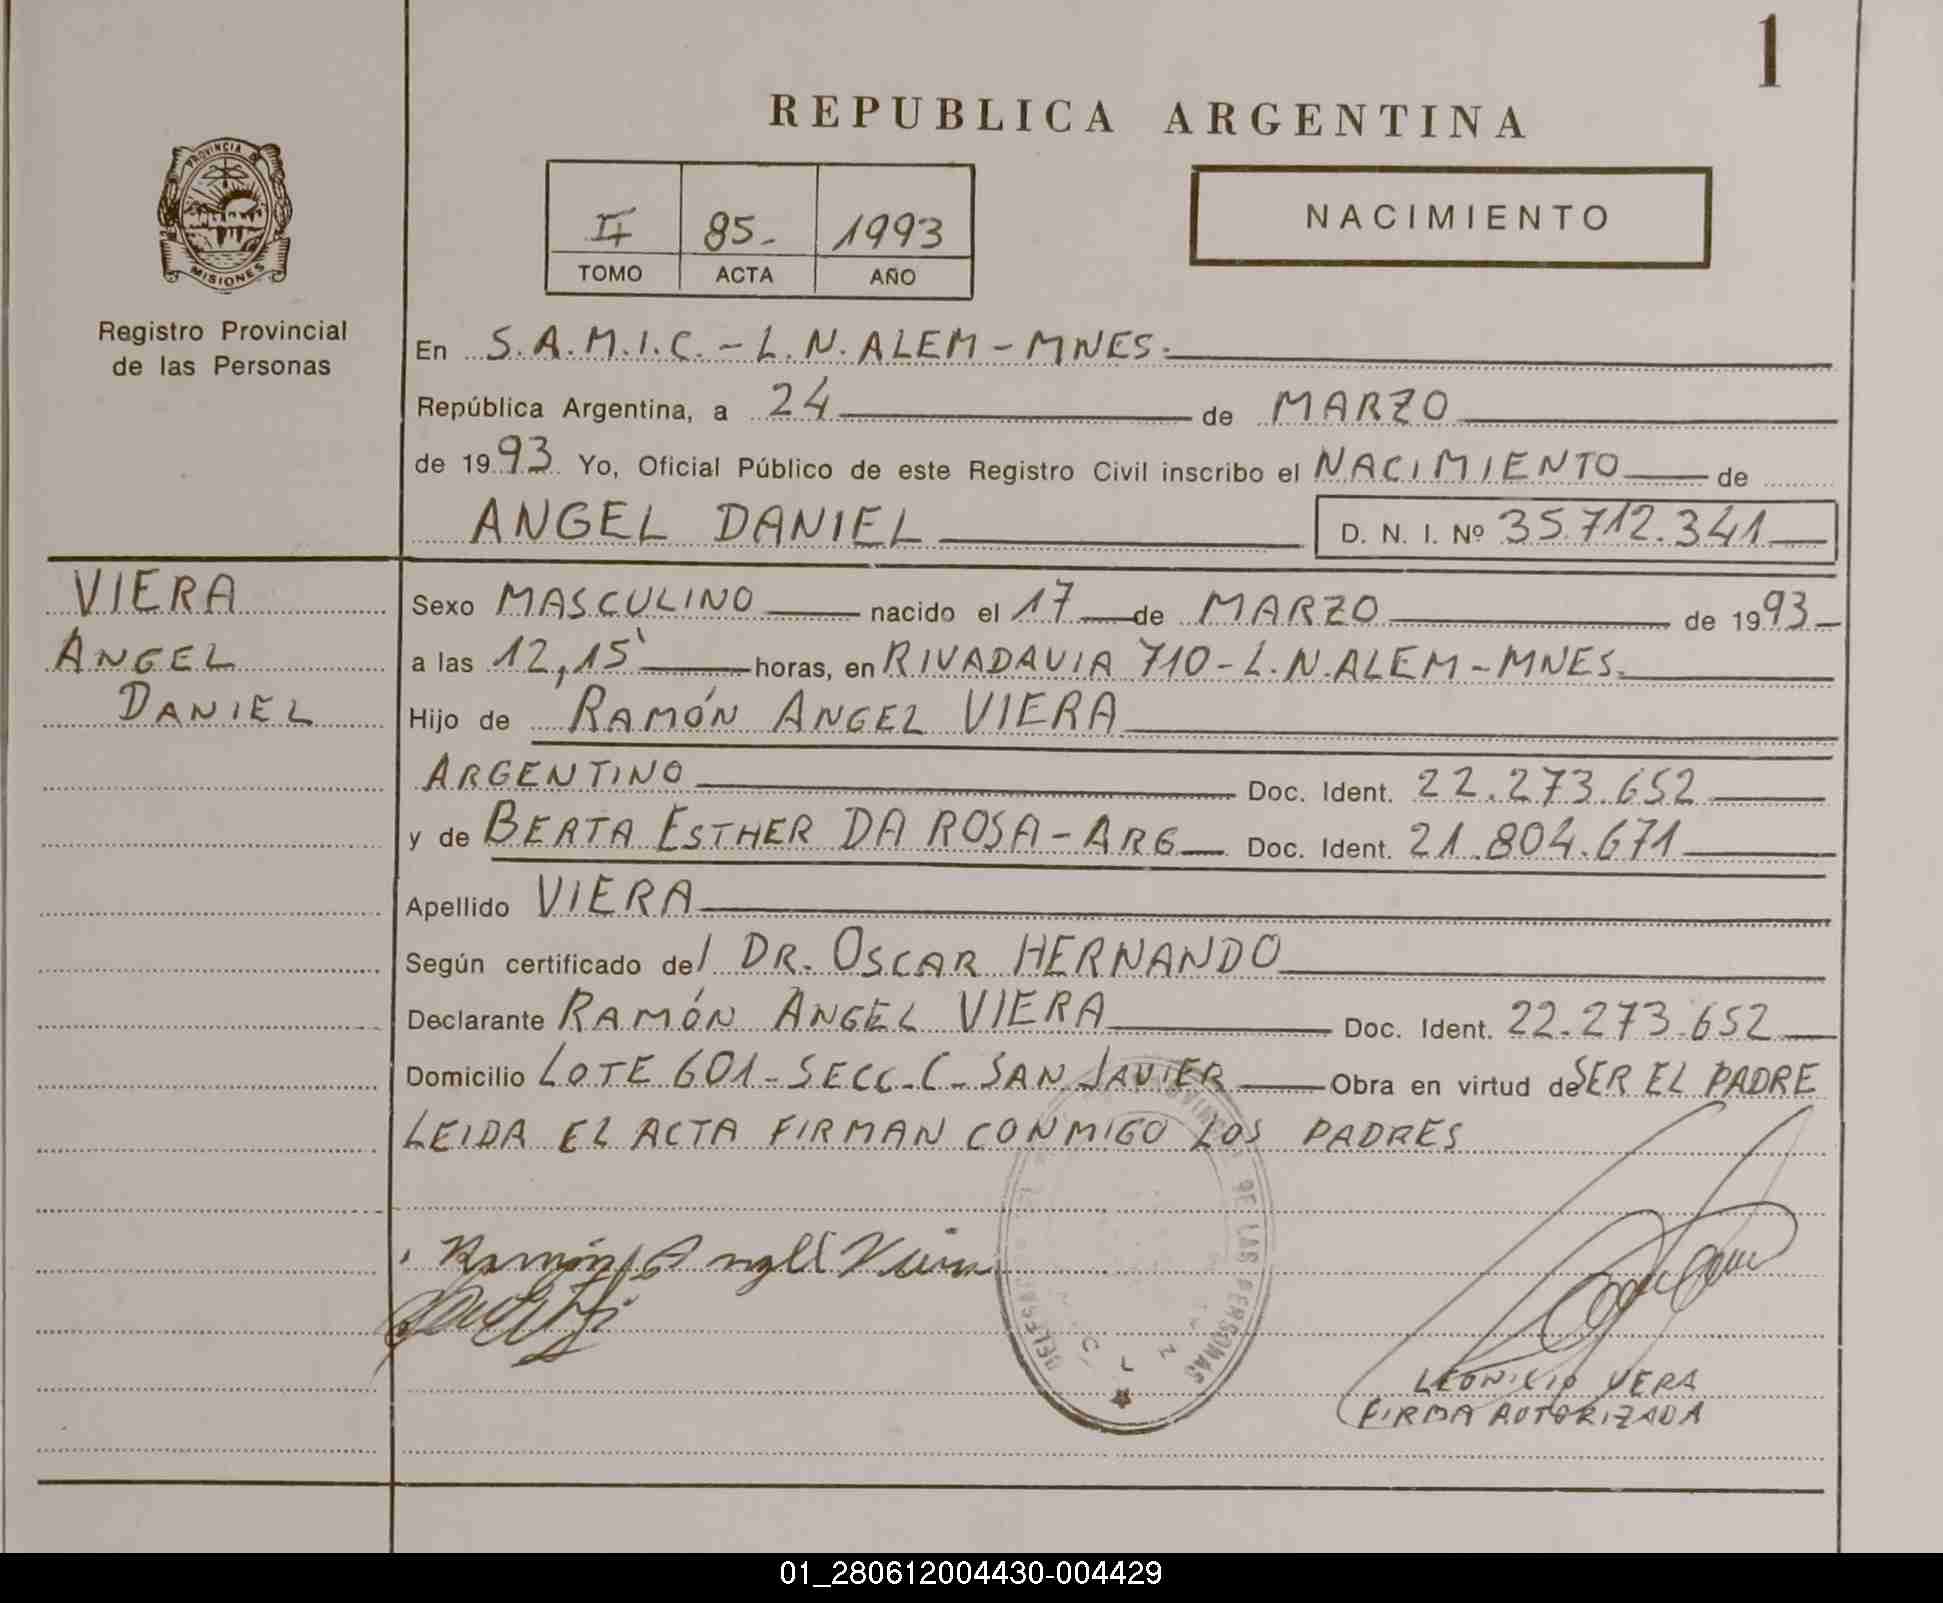 1
REPUBLICA ARGENTINA
PROVINCIA DE
MISIONES
Registro Provincial
de las Personas
II 85- 1993
TOMO ACTA AÑO
NACIMIENTO
En S.A.M.I.C.-L.N.ALEM-MNES.
República Argentina, a 24 de MARZO
de 1993 Yo, Oficial Público de este Registro Civil inscribo el NACIMIENTO de
ANGEL DANIEL D. N. I. Nº 35.712.341
VIERA
ANGEL
DANIEL
Sexo MASCULINO nacido el 17 de MARZO de 1993
a las 12,15' horas, en RIVADAVIA 710-L.N.ALEM-MNES.
Hijo de RAMÓN ANGEL VIERA
ARGENTINO Doc. Ident. 22.273.652
y de BERTA ESTHER DA ROSA-ARG Doc. Ident. 21.804.671
Apellido VIERA
Según certificado del DR. OSCAR HERNANDO
Declarante RAMÓN ANGEL VIERA Doc. Ident. 22.273.652
Domicilio LOTE 601-SECC-C-SAN JAVIER Obra en virtud de SER EL PADRE
LEIDA EL ACTA FIRMAN CONMIGO LOS PADRES
Ramón Angel Viera
DE LAS PERSONAS
LEONILIO VERA
FIRMA AUTORIZADA
01_280612004430-004429